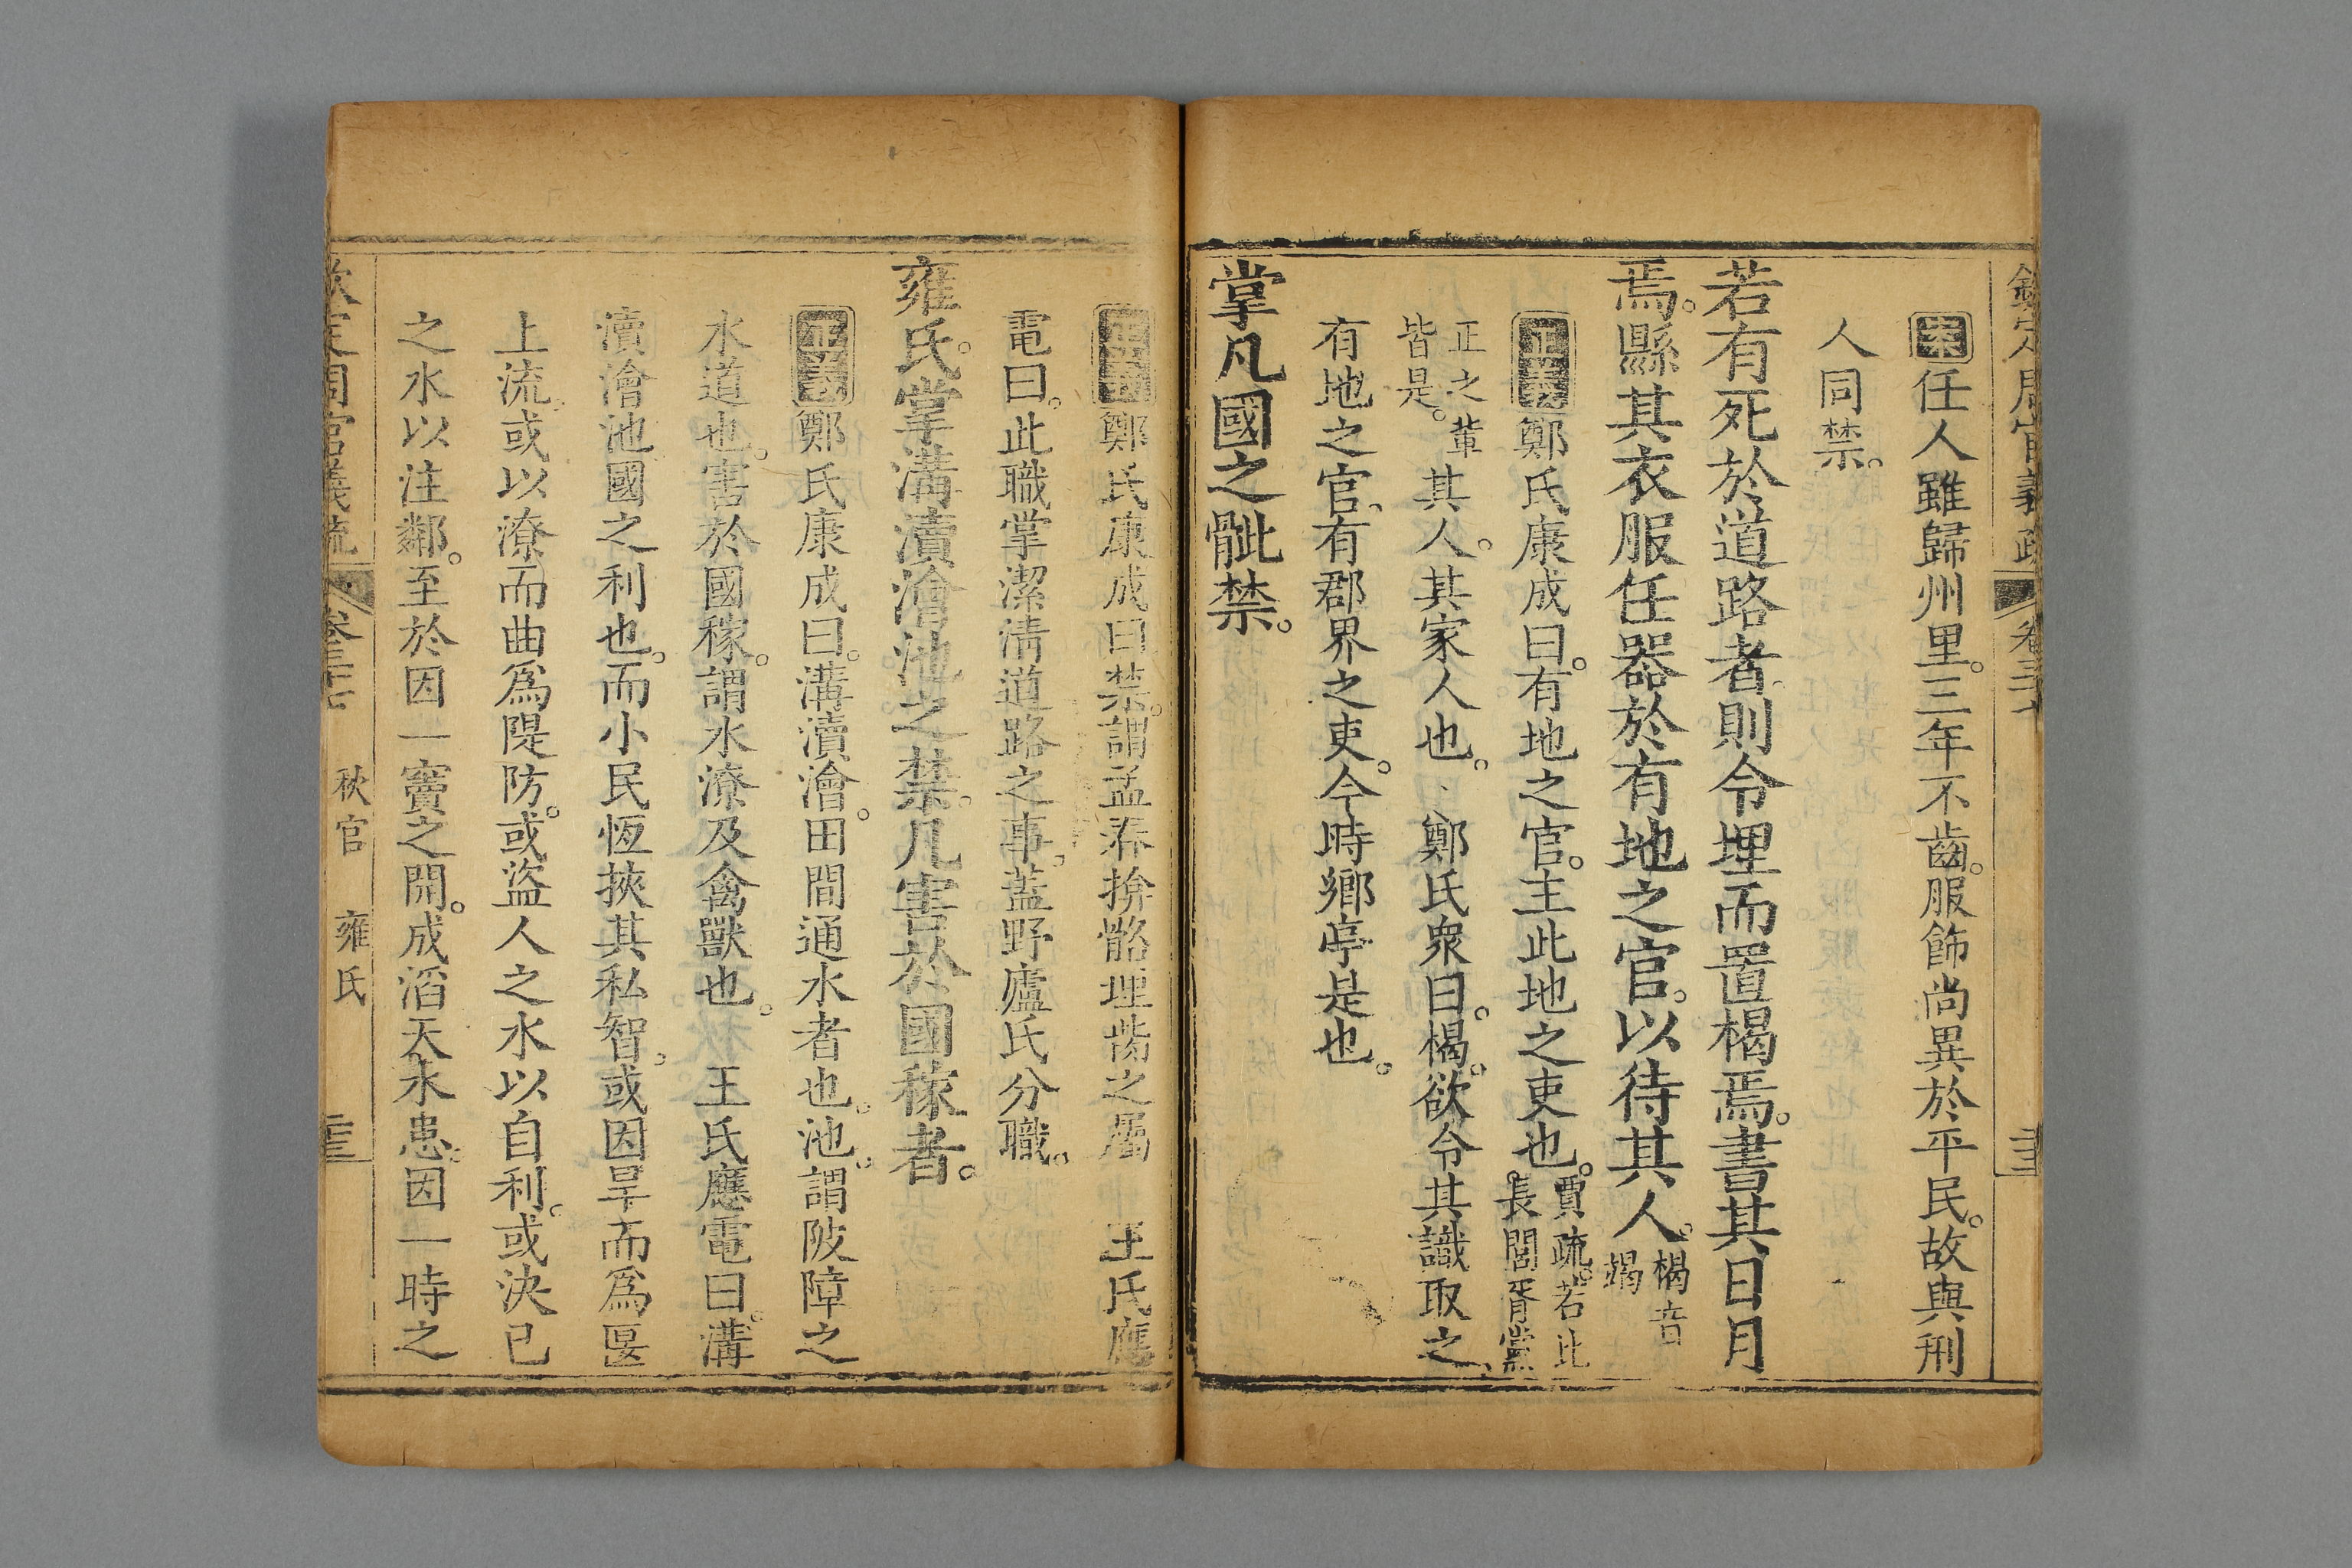 欽定周官義疏 卷三十七
案任人雖歸州里。三年不齒。服飾尚異於平民。故與刑
人同禁。
若有死於道路者。則令埋而置楬焉。書其日月
焉。縣其衣服任器於有地之官。以待其人。楬音
竭
正義鄭氏康成曰。有地之官。主此地之吏也。賈疏。若比
長閭胥黨
正之輩
皆是。其人。其家人也。 鄭氏衆曰。楬。欲令其識取之
有地之官。有郡界之吏。今時鄉亭是也。
掌凡國之骴禁。
正義鄭氏康成曰。禁。謂孟春掩骼埋胔之屬 王氏應
電曰。此職掌潔淸道路之事。蓋野廬氏分職。
雍氏。掌溝瀆澮池之禁。凡害於國稼者。
正義鄭氏康成曰。溝瀆澮。田間通水者也。池。謂陂障之
水道也。害於國稼。謂水潦及禽獸也。 王氏應電曰。溝
瀆澮池國之利也。而小民恆挾其私智。或因旱而爲匽
上流。或以潦而曲爲隄防。或盜人之水以自利。或決己
之水以注鄰。至於因一竇之開。成滔天水患。因一時之
欽定周官義疏 卷三十七 秋官 雍氏